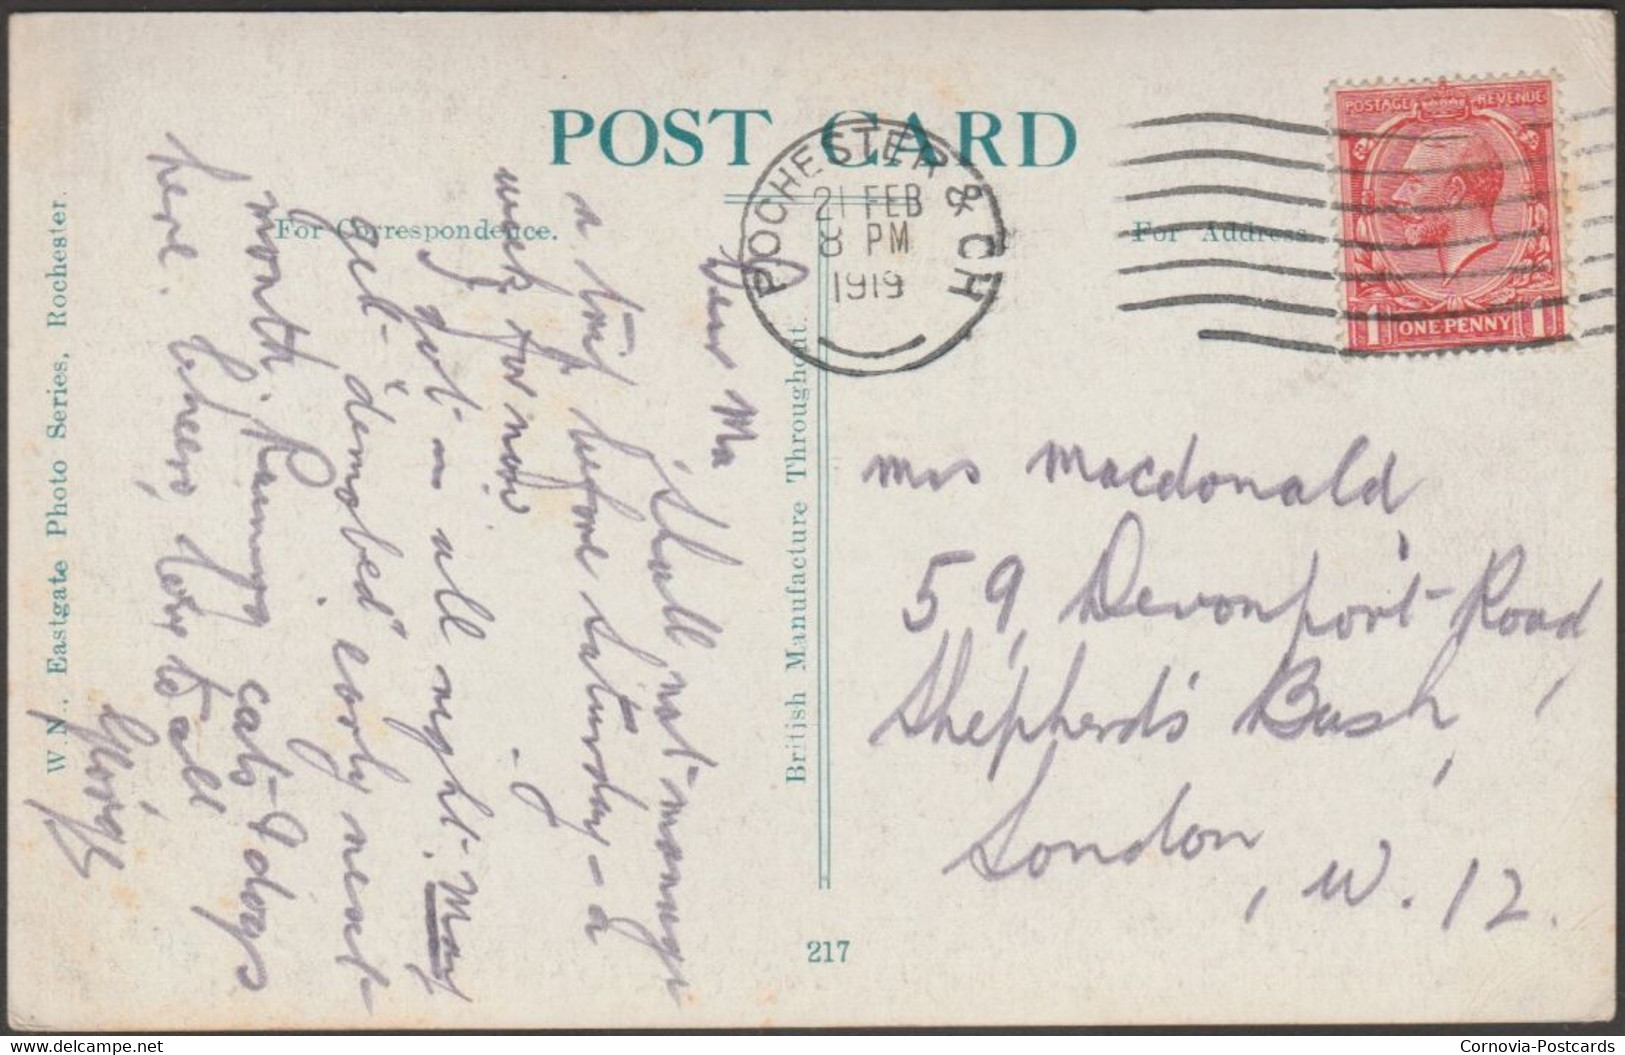 POST CARD
For Correspondence.
For Address
ROCHESTER & CH
21 FEB
8 PM
1919
POSTAGE REVENUE
1 ONE·PENNY 1
Dear Ma
Shall not manage
a before Saturday – a
week for now.
got in all right. May
get "demobed" early next
month. Raining cats & dogs
here. Cheero, love to all
W.N., Eastgate Photo Series, Rochester.
British Manufacture Throughout.
217
Mrs Macdonald,
59, Devonport Road,
Shepherd's Bush,
London, W. 12.
delcampe.net
Cornovia-Postcards